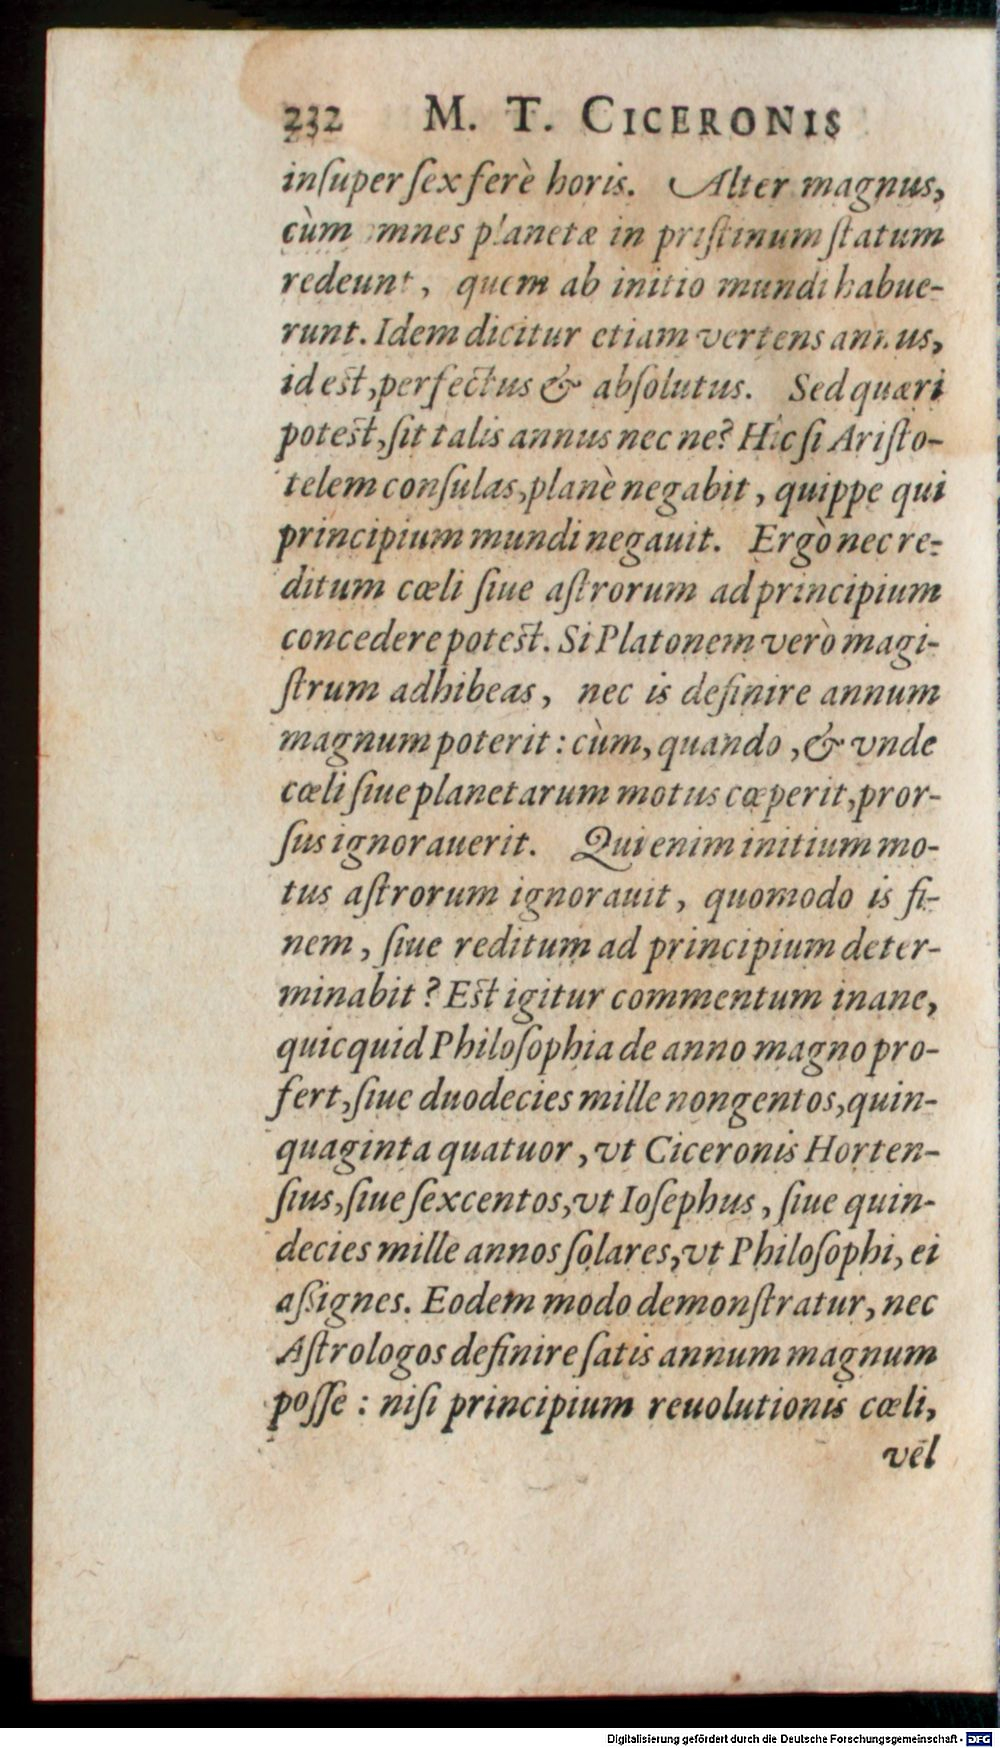 232 M. T. CICERONIS
inſuper ſex ferè horis. Alter magnus,
cùm omnes planetæ in priſtinum ſtatum
redeunt, quem ab initio mundi habue-
runt. Idem dicitur etiam vertens annus,
id eſt, perfectus & abſolutus. Sed quæri
poteſt, ſit talis annus nec ne? Hic ſi Ariſto-
telem conſulas, planè negabit, quippe qui
principium mundi negauit. Ergò nec re-
ditum cœli ſiue aſtrorum ad principium
concedere poteſt. Si Platonem verò magi-
ſtrum adhibeas, nec is definire annum
magnum poterit: cùm, quando, & vnde
cœli ſiue planetarum motus cœperit, pror-
ſus ignorauerit. Qui enim initium mo-
tus aſtrorum ignorauit, quomodo is fi-
nem, ſiue reditum ad principium deter-
minabit? Eſt igitur commentum inane,
quicquid Philoſophia de anno magno pro-
fert, ſiue duodecies mille nongentos, quin-
quaginta quatuor, vt Ciceronis Horten-
ſius, ſiue ſexcentos, vt Ioſephus, ſiue quin-
decies mille annos ſolares, vt Philoſophi, ei
aſsignes. Eodem modo demonſtratur, nec
Aſtrologos definire ſatis annum magnum
poſſe: niſi principium reuolutionis cœli,
vel
Digitalisierung gefördert durch die Deutsche Forschungsgemeinschaft - DFG